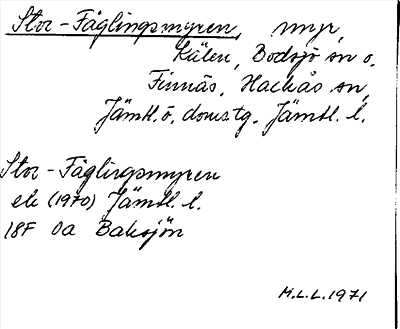 Stor-Fåglingsmyren, myr,
Kälen, Bodsjö sn o.
Finnäs, Hackås sn,
Jämtl. ö. domstg. Jämtl. l.
Stor-Fåglingsmyren
ek (1970) Jämtl. l.
18F 0a Baksjön
M.L.L. 1971